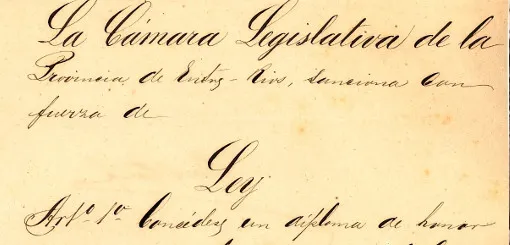 La Cámara Legislativa de la
Provincia de Entre-Rios, sanciona con
fuerza de
Ley
Art.º 1º Concédese un diploma de honor